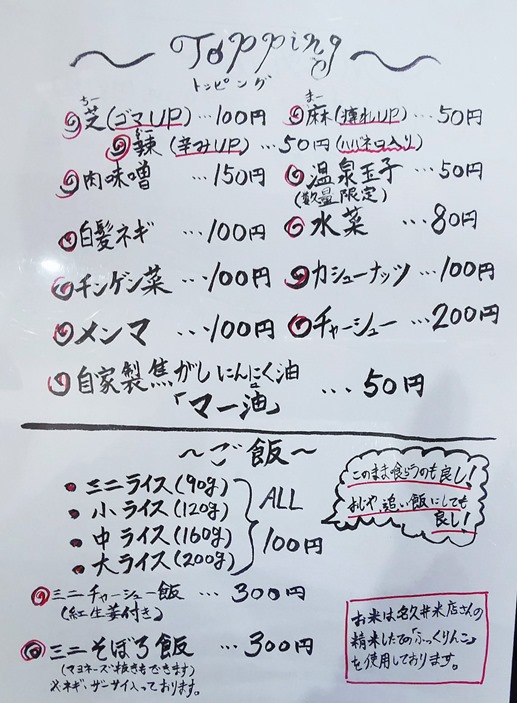 ～Topping～
トッピング
芝(ゴマUP)…100円 麻(痺れUP)…50円
ちー まー
辣(辛みUP)…50円(ハバネロ入り)
らー
肉味噌 …150円 温泉玉子 …50円
(数量限定)
白髪ネギ …100円 水菜 …80円
チンゲン菜 …100円 カシューナッツ…100円
メンマ …100円 チャーシュー…200円
自家製焦がしにんにく油 …50円
「マー油」
～ご飯～
ミニライス(90g)
小ライス(120g)
中ライス(160g)
大ライス(200g)
ALL
100円
このまま喰らうのも良し!
おじや、追い飯にしても
良し!
ミニチャーシュー飯 …300円
(紅生姜付き)
ミニそぼろ飯 …300円
(マヨネーズ抜きもできます)
※ネギ、ザーサイ入っております。
お米は名久井米店さんの
精米したての「ふっくりんこ」
を使用しております。